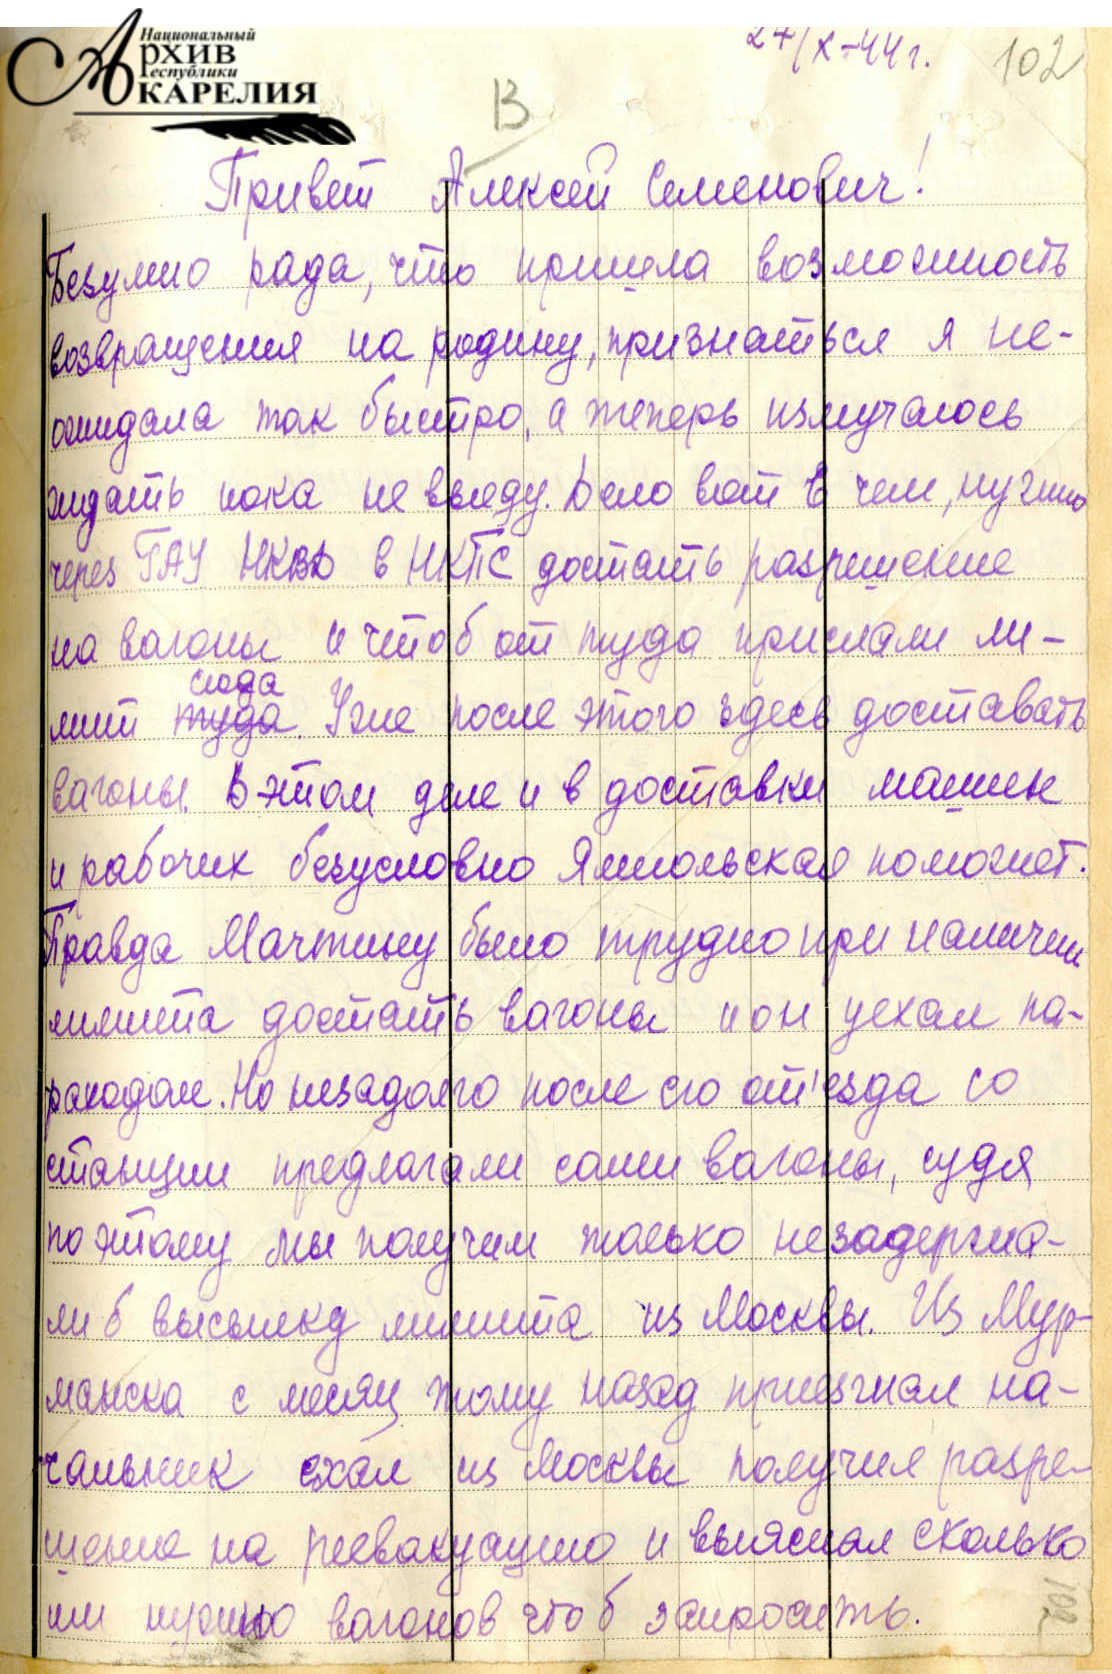 Национальный
Архив
Республики
Карелия
27/X-44г.
102
В
Привет Алексей Семенович!
Безумно рада, что пришла возможность
возвращения на родину, признаться я не-
ожидала так быстро, а теперь измучалось
ждать пока не выеду. Дело вот в чем, нужно
через ГАУ НКВД в НКПС достать разрешение
на вагоны и чтоб от туда прислали ли-
сюда
мит туда. Уже после этого здесь доставать
вагоны. В этом деле и в доставки машин
и рабочих безусловно Ямпольская поможет.
Правда Мачтину было трудно при наличии
лимита достать вагоны и он уехал па-
роходом. Но незадолго после его от'езда со
станции предлагали сами вагоны, судя
по этому мы получим только незадержа-
ли б высылку лимита из Москвы. Из Мур-
манска с месяц тому назад приезжал на-
чальник ехал из Москвы получил разре-
шение на реевакуацию и выяснял сколько
им нужно вагонов чтоб запросить.
102